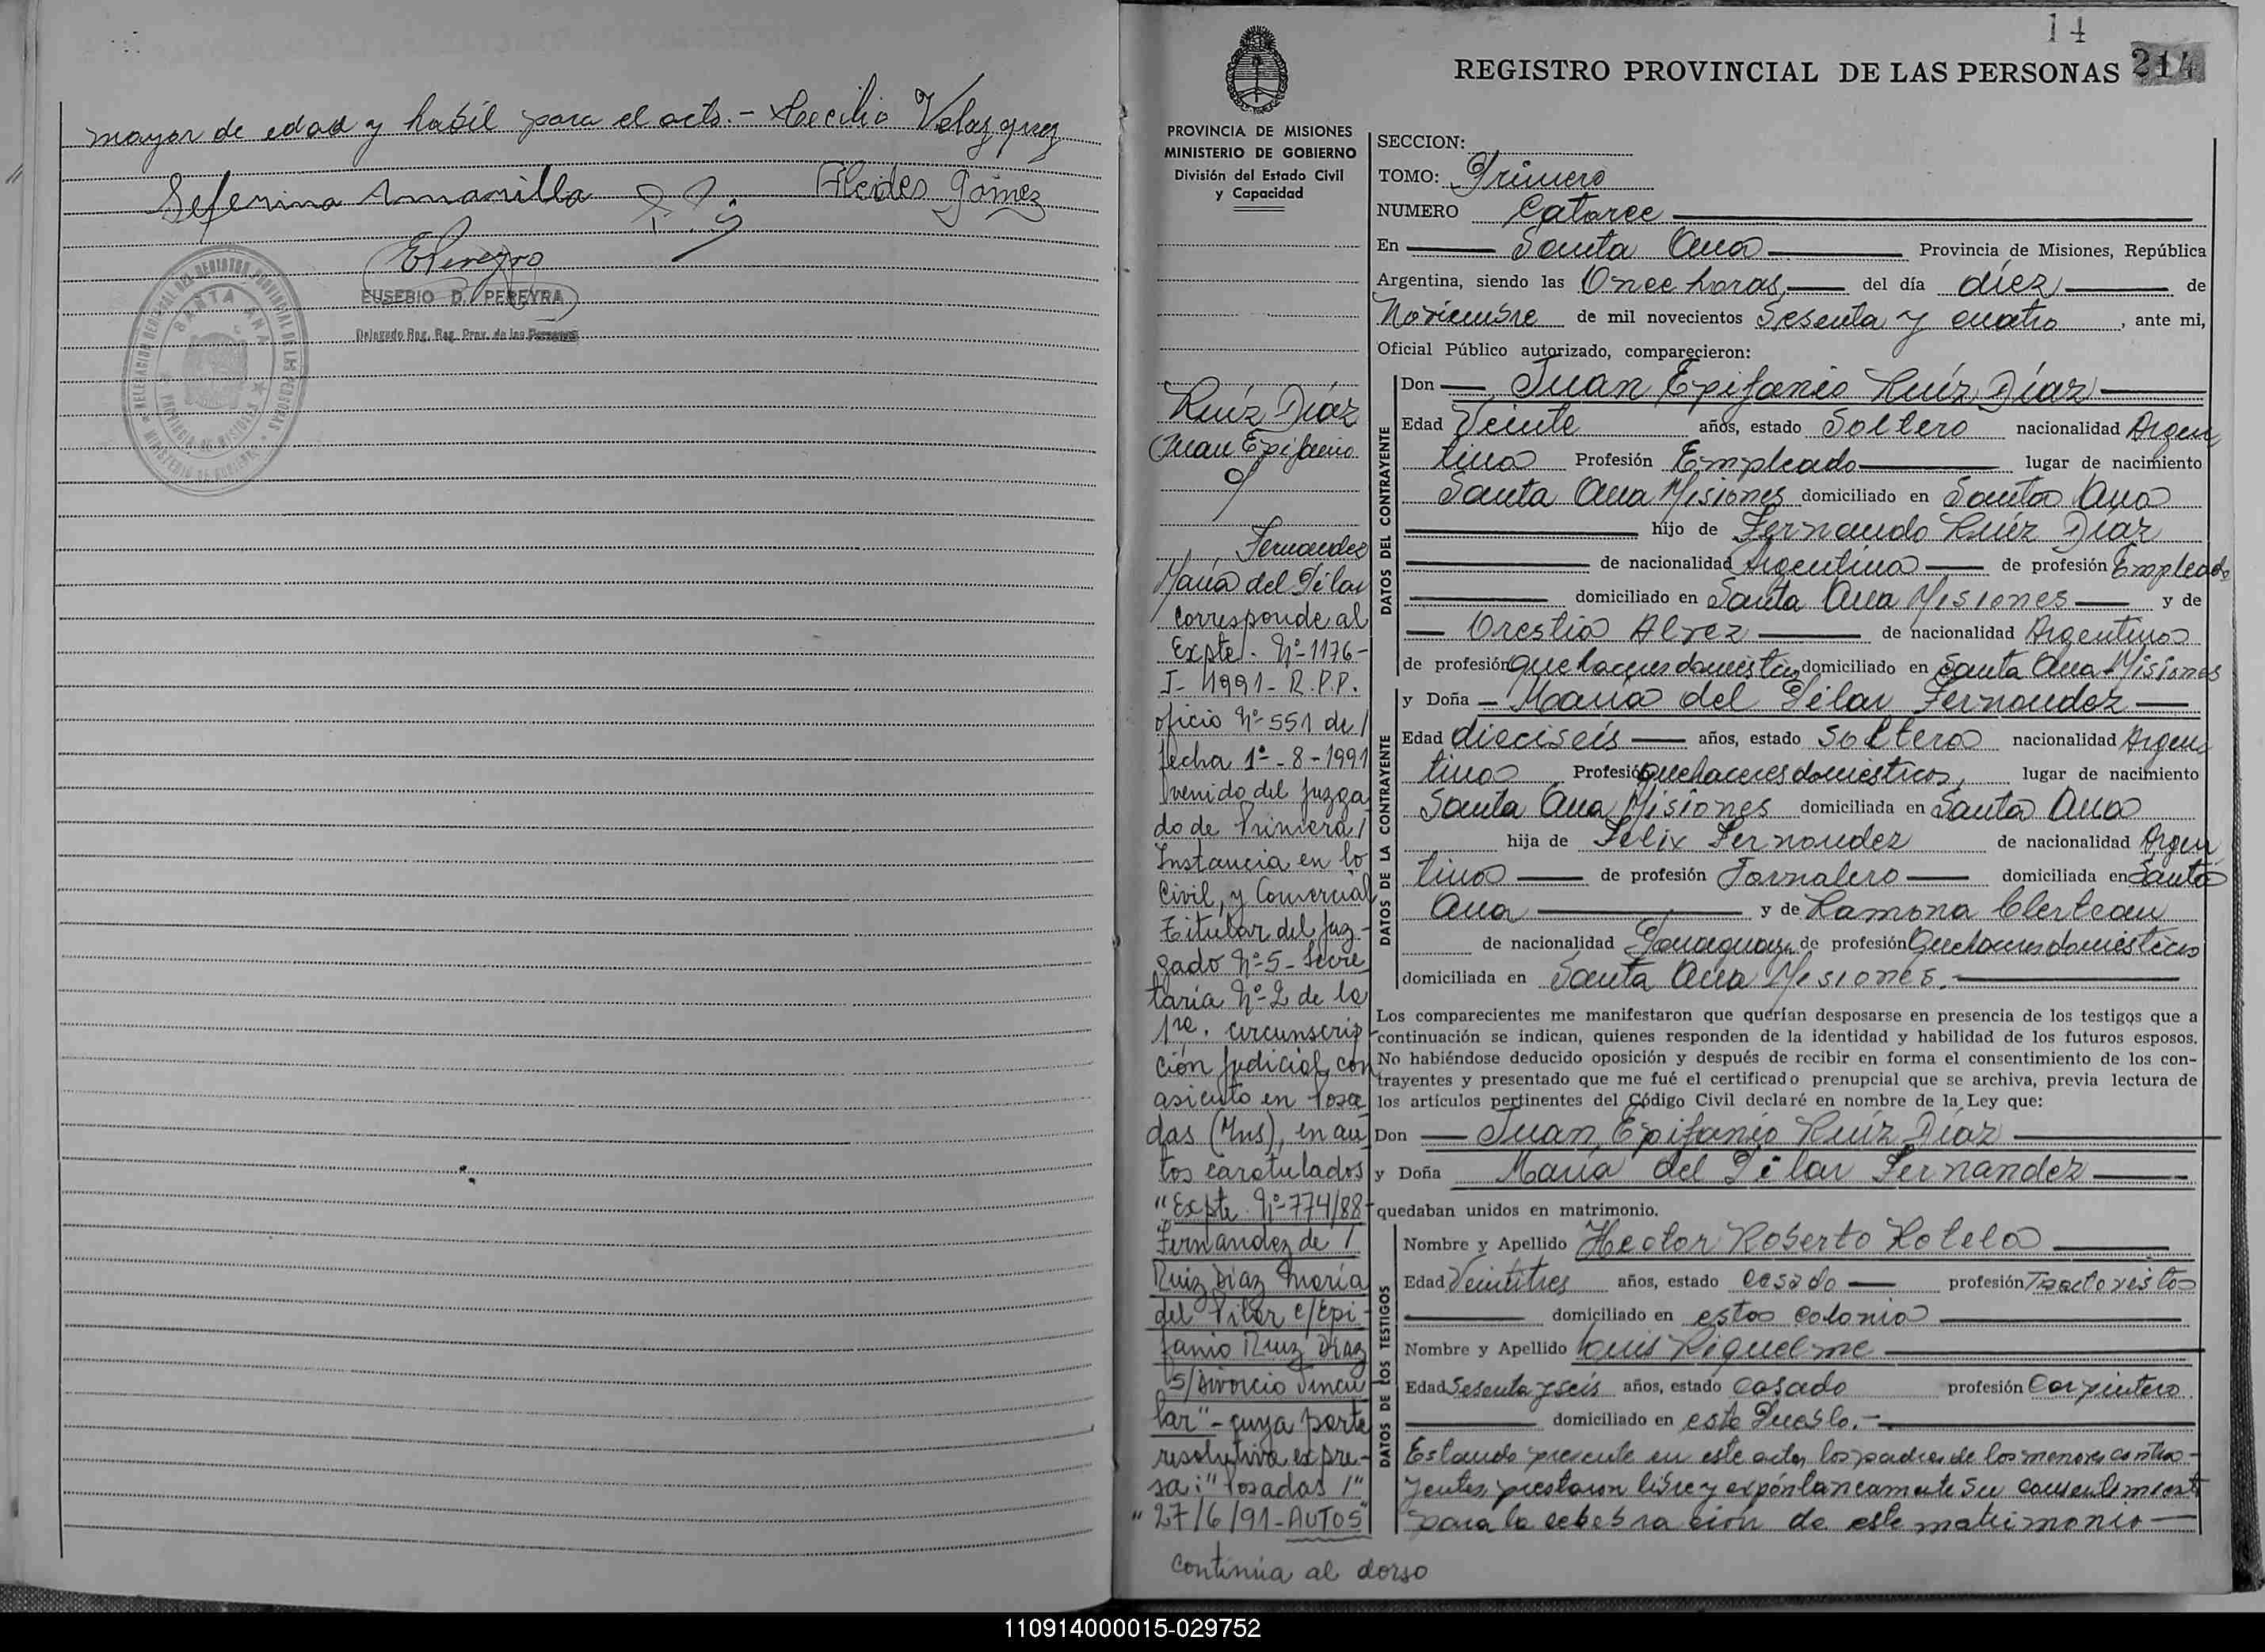 mayor de edad y habil para el acto.- Cecilio Velazquez
Seferina Amarilla
Alcides Gomez
EUSEBIO D. PEREYRA
Delegado Reg. Reg. Prov. de las Personas
DELEGACION REGIONAL DEL REGISTRO PROVINCIAL DE LAS PERSONAS
SANTA ANA
PROVINCIA DE MISIONES
MINISTERIO DE GOBIERNO
14
REGISTRO PROVINCIAL DE LAS PERSONAS 214
PROVINCIA DE MISIONES
MINISTERIO DE GOBIERNO
División del Estado Civil
y Capacidad
Ruíz Díaz
Juan Epifanio
c/
Fernandez
María del Pilar
corresponde al
Expte. Nº-1176-
I-1991-R.P.P.
oficio Nº-551 de/
fecha 1º-8-1991
venido del Juzga
do de Primera/
Instancia en lo
Civil, y Comercial
Titular del Juz-
gado Nº-5-Secre
taría Nº-2 de la
1ra. circunscrip-
ción Judicial, con
asiento en Posa
das (Mns), en au
tos caratulados
"Expte. Nº-774/88-
Fernandez de /
Ruiz Diaz María
del Pilar c/Epi-
fanio Ruiz Diaz
S/Divorcio Vincu
lar"- cuya parte
resolutiva expre-
sa: "Posadas /"
"27/6/91-AUTOS"
continúa al dorso
SECCION:
TOMO: Primero
NUMERO Catorce
En Santa Ana Provincia de Misiones, República
Argentina, siendo las Once horas, del día diez de
Noviembre de mil novecientos Sesenta y cuatro, ante mi,
Oficial Público autorizado, comparecieron:
DATOS DEL CONTRAYENTE
Don Juan Epifanio Ruíz Díaz
Edad Veinte años, estado Soltero nacionalidad Argen
tina Profesión Empleado lugar de nacimiento
Santa Ana Misiones domiciliado en Santa Ana
hijo de Fernando Ruíz Díaz
de nacionalidad Argentina de profesión Empleado
domiciliado en Santa Ana Misiones y de
Orestia Alvez de nacionalidad Argentina
de profesión Quehaceres domésticos domiciliado en Santa Ana Misiones
DATOS DE LA CONTRAYENTE
y Doña María del Pilar Fernandez
Edad dieciseis años, estado Soltera nacionalidad Argen
tina Profesión Quehaceres domésticos, lugar de nacimiento
Santa Ana Misiones domiciliada en Santa Ana
hija de Felix Fernandez de nacionalidad Argen
tina de profesión Jornalero domiciliada en Santa
Ana y de Ramona
de nacionalidad de profesión Quehaceres domésticos
domiciliada en Santa Ana Misiones.-
Los comparecientes me manifestaron que querían desposarse en presencia de los testigos que a
continuación se indican, quienes responden de la identidad y habilidad de los futuros esposos.
No habiéndose deducido oposición y después de recibir en forma el consentimiento de los con-
trayentes y presentado que me fué el certificado prenupcial que se archiva, previa lectura de
los artículos pertinentes del Código Civil declaré en nombre de la Ley que:
Don Juan Epifanio Ruíz Díaz
y Doña María del Pilar Fernandez
quedaban unidos en matrimonio.
DATOS DE LOS TESTIGOS
Nombre y Apellido Hector Roberto Rotela
Edad Veintitres años, estado casado profesión Tractorista
domiciliado en esta colonia
Nombre y Apellido Luis Riquelme
Edad Sesenta y seis años, estado Casado profesión Carpintero
domiciliado en este Pueblo.-
Estando presente en este acto, los padres de los menores contra-
yentes, prestaron libre y espóntaneamente su consentimiento
para la celebracion de este matrimonio
110914000015-029752